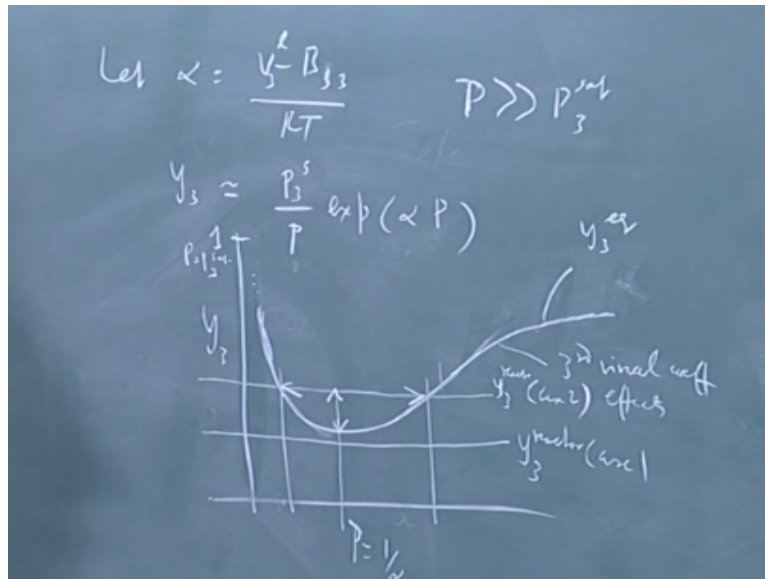 Let α = (V₃ˡ - B₃₃) / RT
P >> P₃ˢᵃᵗ
y₃ ≃ (P₃ˢ / P) exp(αP)
1
y₃ᵉᵠ
y₃
3ʳᵈ virial coeff
effects
y₃ʳᵉᵃᶜᵗᵒʳ (case 2)
y₃ʳᵉᵃᶜᵗᵒʳ (case 1
P = 1/α